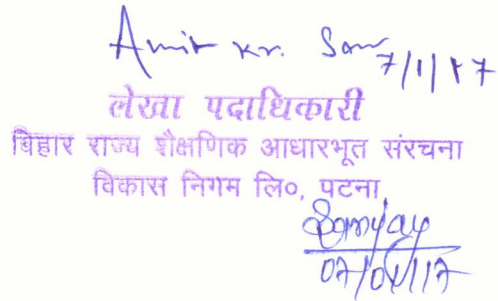 Amit Kr. Saw
7/1/17
लेखा पदाधिकारी
बिहार राज्य शैक्षणिक आधारभूत संरचना
विकास निगम लि०, पटना
Sanjay
07/01/17